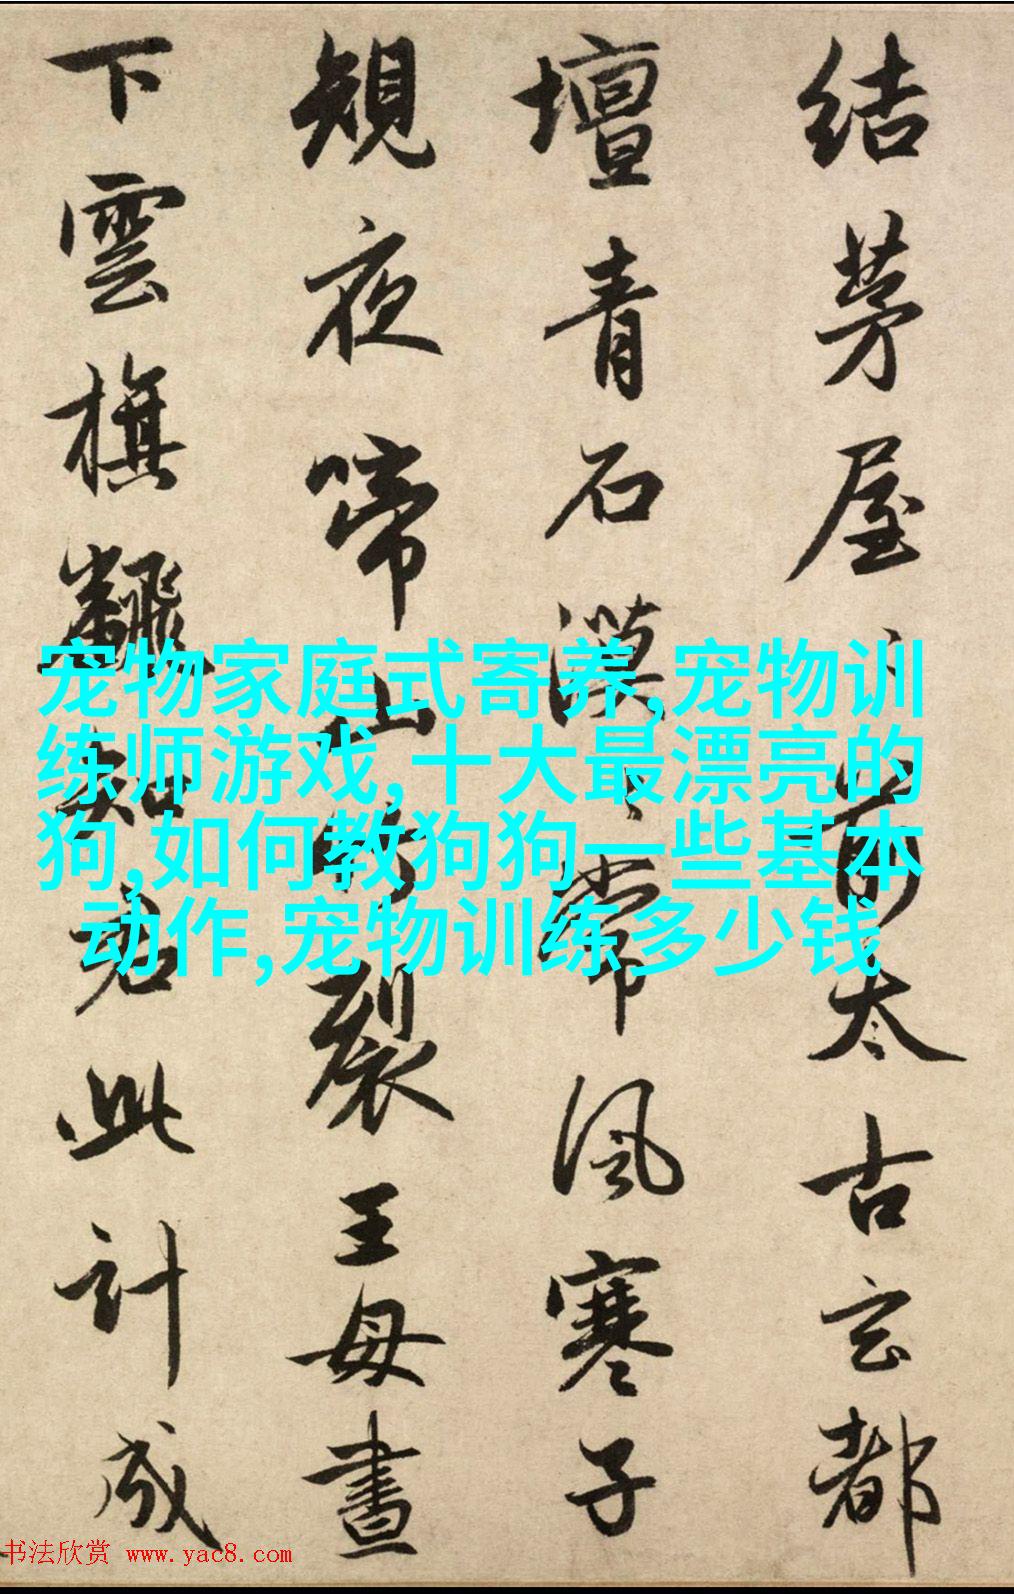 結茅屋〻前太古玄都
壇青石漠〻常風寒子
規夜啼山竹裂王母晝
下雲旗飜知君此計成
宠物家庭式寄养,宠物训
练师游戏,十大最漂亮的
狗,如何教狗狗一些基本
动作,宠物训练多少钱
书法欣赏 www.yac8.com